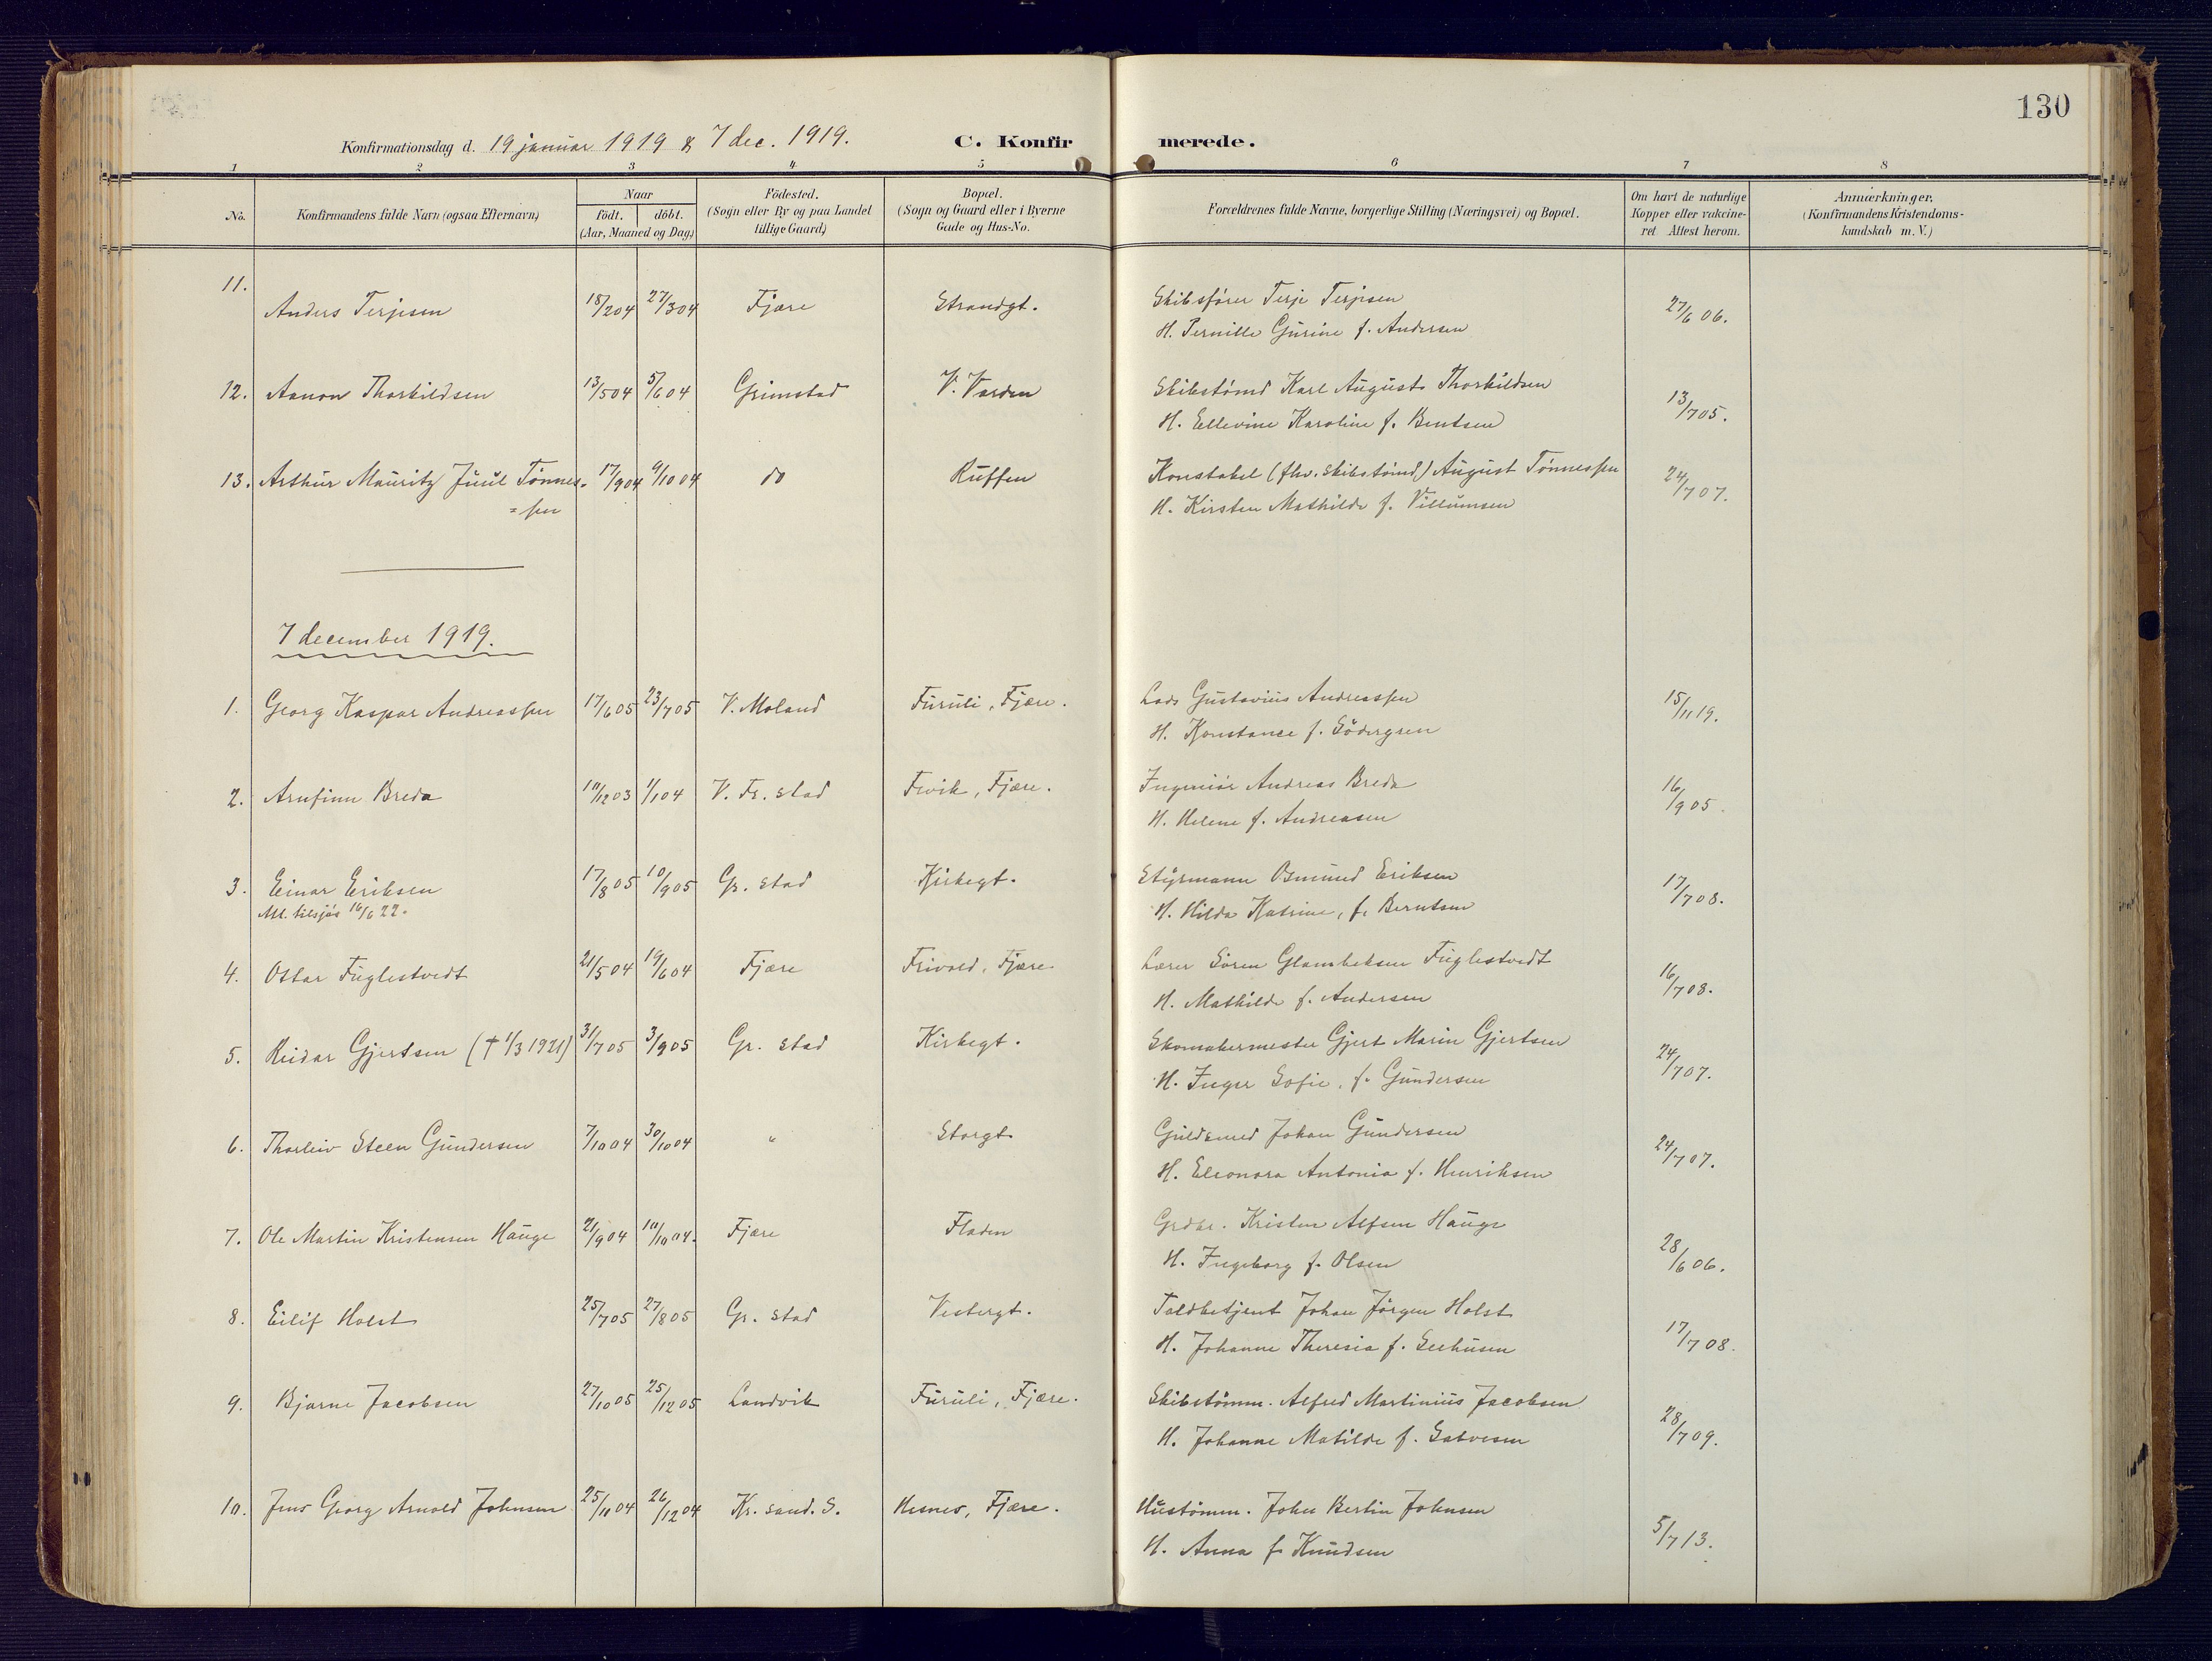 130
Konfirmationsdag d. 19 januar 1919 & 7 dec. 1919. C. Konfirmerede.
1 2 3 4 5 6 7 8
No.
Konfirmandens fulde Navn (ogsaa Efternavn)
Naar
födt. döbt.
(Aar, Maaned og Dag)
Födested.
(Sogn eller By og paa Landet
tillige Gaard)
Bopæl.
(Sogn og Gaard eller i Byerne
Gade og Hus-No.
Forældrenes fulde Navne, borgerlige Stilling (Næringsvei) og Bopæl.
Om havt de naturlige
Kopper eller vakcine-
ret Attest herom.
Anmærkninger,
(Konfirmandens Kristendoms-
kundskab m. V.)
11. Anders Terjesen 18/2 04 27/3 04 Fjære Strandgt. Skibsfører Terje Terjesen 27/6 06.
H. Pernille Gurine f. Andersen
12. Aanon Thorkildsen 13/5 04 5/6 04 Grimstad V. Varden Skibstømd Karl August Thorkildsen 13/7 05.
H. Ellevine Karoline f. Bentsen
13. Arthur Mauritz Juul Tønnes- 17/9 04 9/10 04 do Ruffen Konstabel (fhv. skibstømd) August Tønnessen 24/7 07.
=sen H. Kirsten Mathilde f. Villumsen
7 december 1919.
1. Georg Kaspar Andreassen 17/6 05 23/7 05 V. Moland Furuli, Fjære. Lods Gustavius Andreassen 15/11 19.
H. Konstance f. Södergren
2. Arnfinn Breda 10/12 03 1/1 04 V. Fr. stad Fevik, Fjære. Ingeniör Andreas Breda 16/9 05
H. Helene f. Andreasen
3. Einar Eriksen 17/8 05 10/9 05 Gr. stad Kirkegt. Styrmann Osmund Eriksen 17/7 08.
Att. tilsjös 16/6 22. H. Hilda Katrine, f. Berntsen
4. Ottar Fuglestvedt 21/5 04 19/6 04 Fjære Frivold, Fjære Lærer Sören Glambeksen Fuglestvedt 16/7 08.
H. Mathilde f. Andersen
5. Reidar Gjertsen († 1/3 1921) 31/7 05 3/9 05 Gr. stad Kirkegt. Skomakermester Gjert Marin Gjertsen 24/7 07.
H. Inger Sofie, f. Gundersen
6. Thorleiv Steen Gundersen 7/10 04 30/10 04 " Storgt. Guldsmed Johan Gundersen 24/7 07.
H. Eleonora Antonia f. Henriksen
7. Ole Martin Kristensen Hauge 21/9 04 10/10 04. Fjære Fladen Grdbr. Kristen Alfsen Hauge 28/6 06.
H. Ingeborg f. Olsen
8. Eilif Holst 25/7 05 27/8 05 Gr. stad Vestergt. Toldbetjent Johan Jörgen Holst 17/7 08.
H. Johanne Theresia f. Seehusen
9. Bjarne Jacobsen 27/10 05 25/12 05 Landvik Furuli, Fjære. Skibstömm. Alfred Martinius Jacobsen 28/7 09.
H. Johanne Matilde f. Salvesen
10. Jens Georg Arnold Johnsen 25/11 04 26/12 04 Kr. sand. S. Hesnes, Fjære. Hustömm. John Bertin Johnsen 5/7 13.
H. Anna f. Knudsen